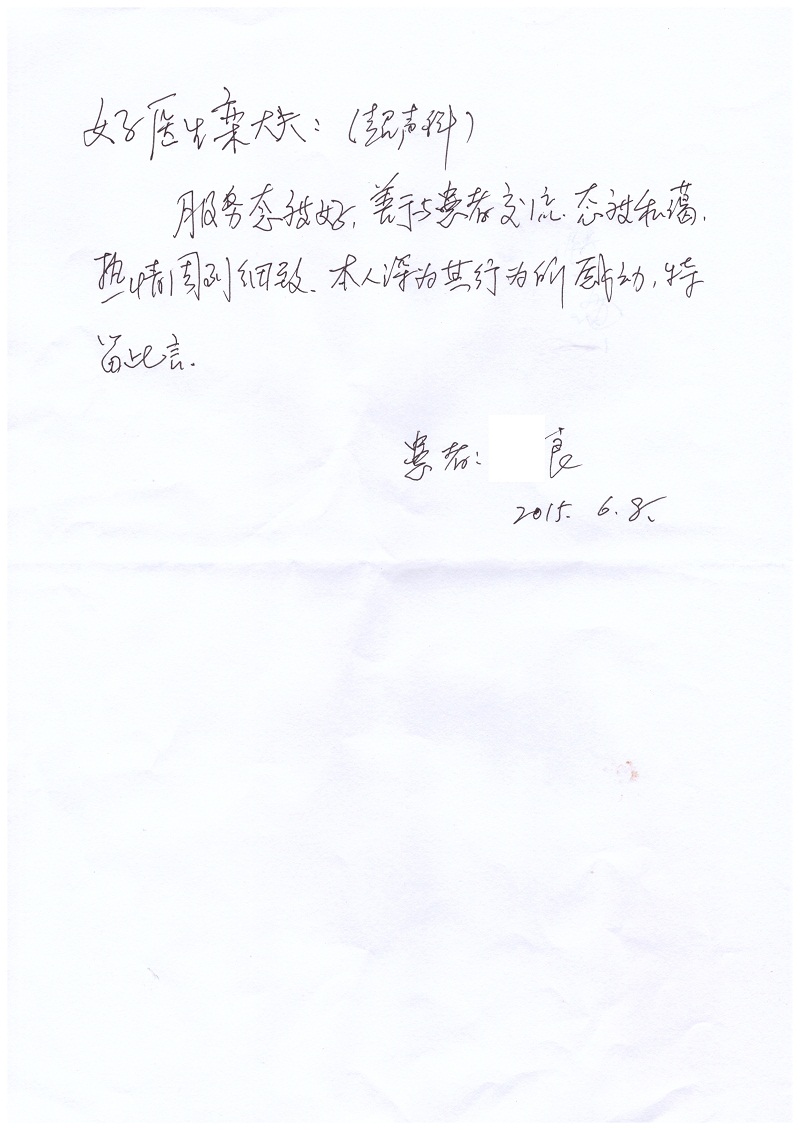 好医生栾大夫：（超声科）
服务态度好，善于与患者交流.态度和蔼.
热情周到细致、本人深为其行为所感动，特
留此言.
患者： 良
2015. 6. 8.